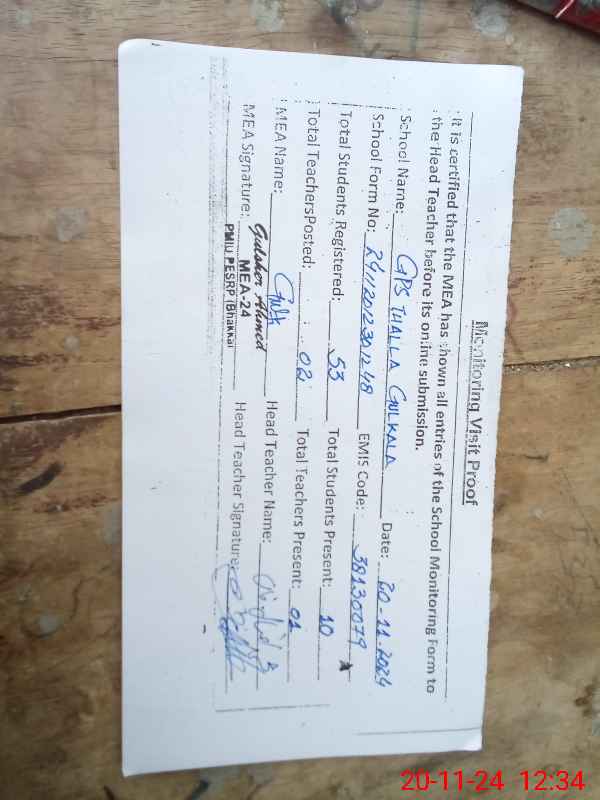 Monitoring Visit Proof
It is certified that the MEA has shown all entries of the School Monitoring Form to
the Head Teacher before its online submission.
School Name: GPS THALLA GULKALA Date: 20-11-2024
School Form No: 24112012301248 EMIS Code: 38130079
Total Students Registered: 53 Total Students Present: 10
Total TeachersPosted: 02 Total Teachers Present: 01
MEA Name: Head Teacher Name:
Gulsher Ahmed
MEA Signature: MEA-24 Head Teacher Signature:
PMIU PESRP (Bhakkar)
20-11-24 12:34